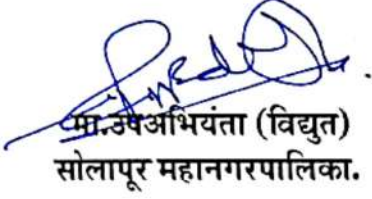 मा.उपअभियंता (विद्युत)
सोलापूर महानगरपालिका.